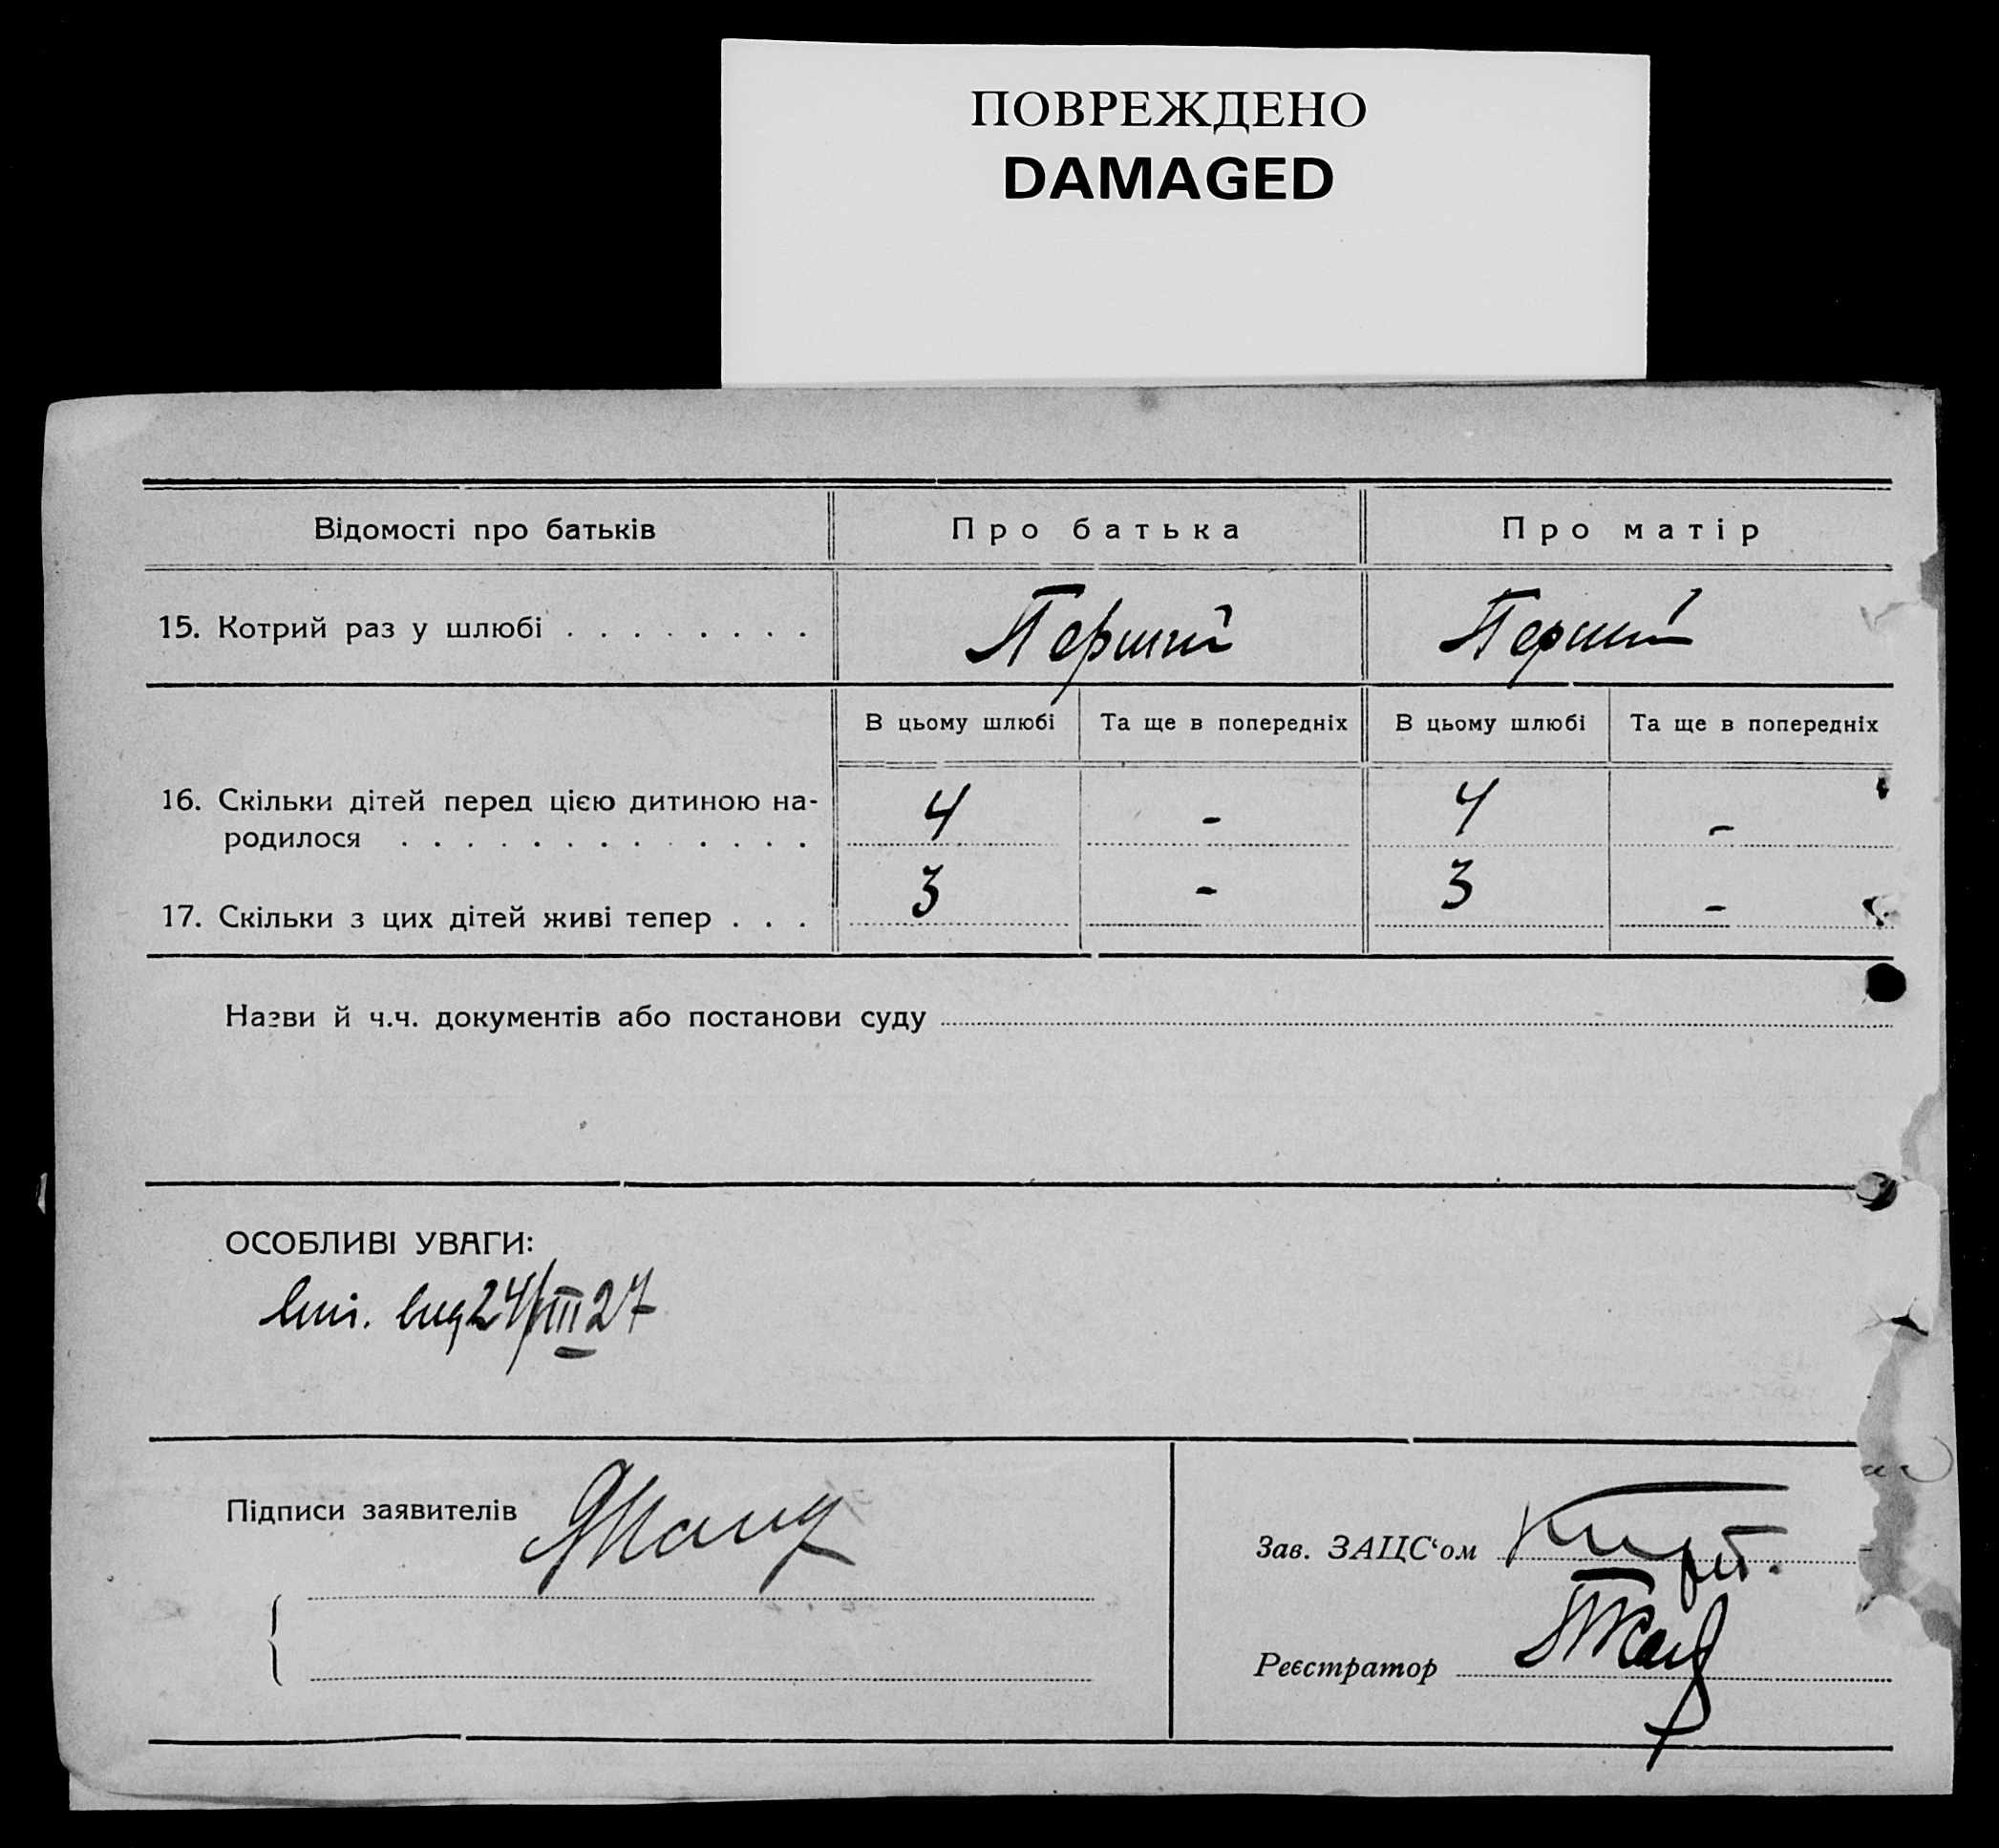 ПОВРЕЖДЕНО
DAMAGED
Відомості про батьків Про батька Про матір
15. Котрий раз у шлюбі . . . . . . . . Перший Перший
В цьому шлюбі Та ще в попередніх В цьому шлюбі Та ще в попередніх
16. Скільки дітей перед цією дитиною на-
родилося . . . . . . . . . . . . . 4 - 4 -
17. Скільки з цих дітей живі тепер . . . 3 - 3 -
Назви й ч.ч. документів або постанови суду
ОСОБЛИВІ УВАГИ:
24/III 27
Підписи заявителів
Зав. ЗАЦС‘ом
Реєстратор